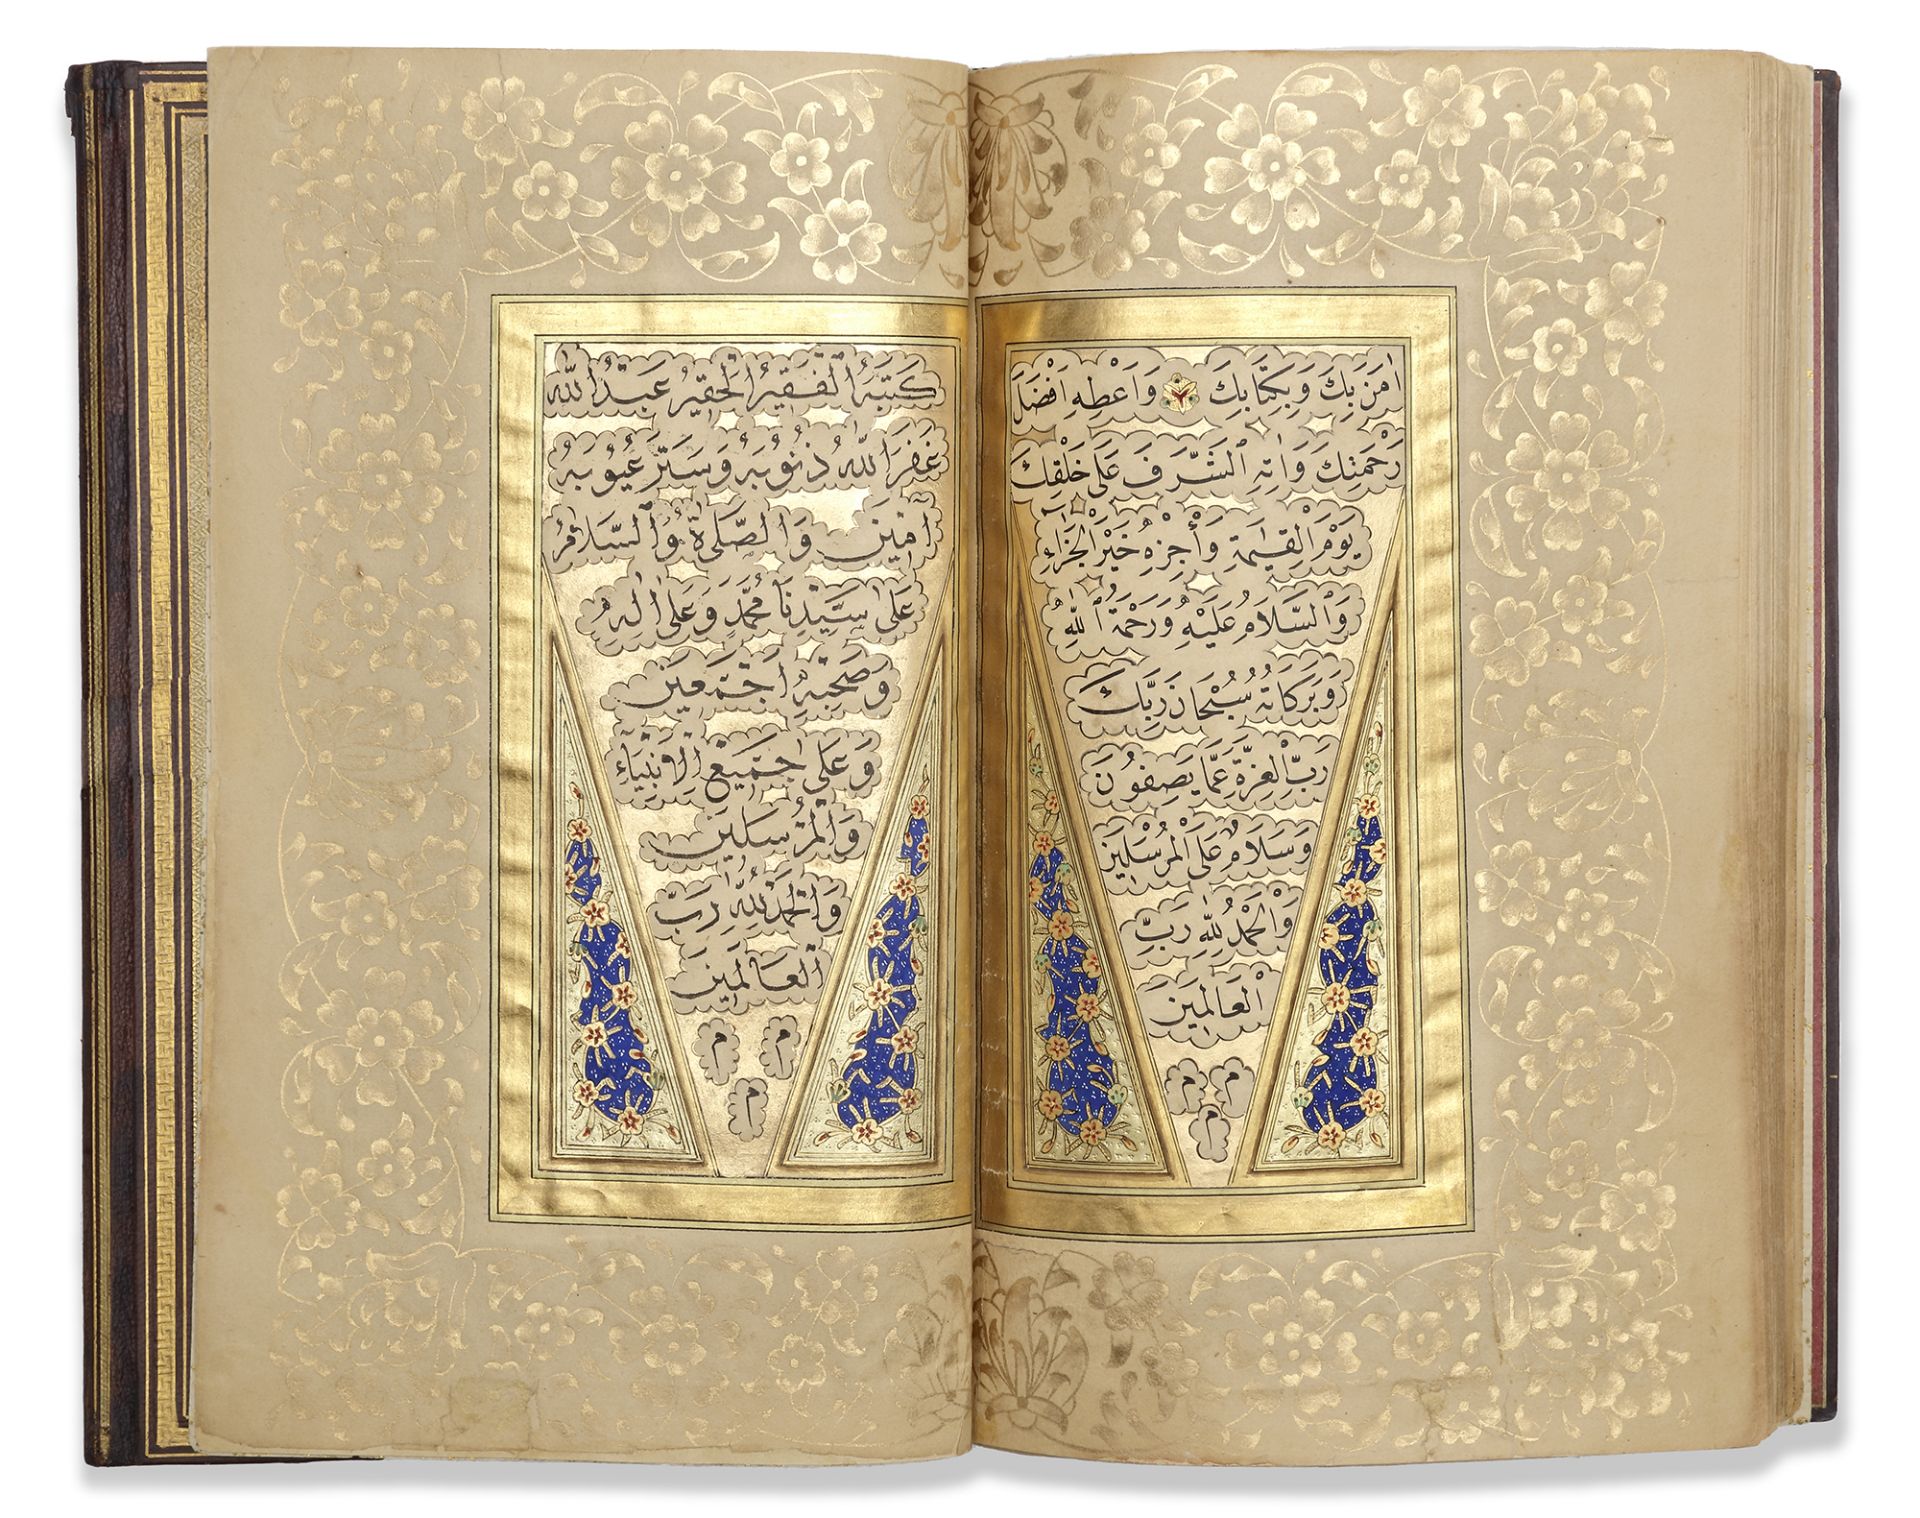 اٰمَنَ بِكَ وَبِكِتَابِكَ وَاَعْطِهِ اَفْضَلَ
رَحْمَتِكَ وَاٰتِهِ الشَّرَفَ عَلَى خَلْقِكَ
يَوْمَ الْقِيٰمَةِ وَأْجِزِهِ خَيْرَ الْجَزَاءِ
وَالسَّلَامُ عَلَيْهِ وَرَحْمَةُ اللّٰهِ
وَبَرَكَاتُهُ سُبْحَانَ رَبِّكَ
رَبِّ الْعِزَّةِ عَمَّا يَصِفُونَ
وَسَلَامٌ عَلَى الْمُرْسَلِينَ
وَالْحَمْدُ لِلّٰهِ رَبِّ
الْعَالَمِينَ
م م
م
كَتَبَهُ الْفَقِيرُ الْحَقِيرُ عَبْدُ اللّٰه
غَفَرَ اللّٰهُ ذُنُوبَهُ وَسَتَرَ عُيُوبَهُ
آمِينَ وَالصَّلَاةُ وَالسَّلَامُ
عَلَى سَيِّدِنَا مُحَمَّدٍ وَعَلَى اٰلِهِ
وَصَحْبِهِ اَجْمَعِينَ
وَعَلَى جَمِيعِ الْاَنْبِيَاءِ
وَالْمُرْسَلِينَ
وَالْحَمْدُ لِلّٰهِ رَبِّ
الْعَالَمِينَ
م م
م